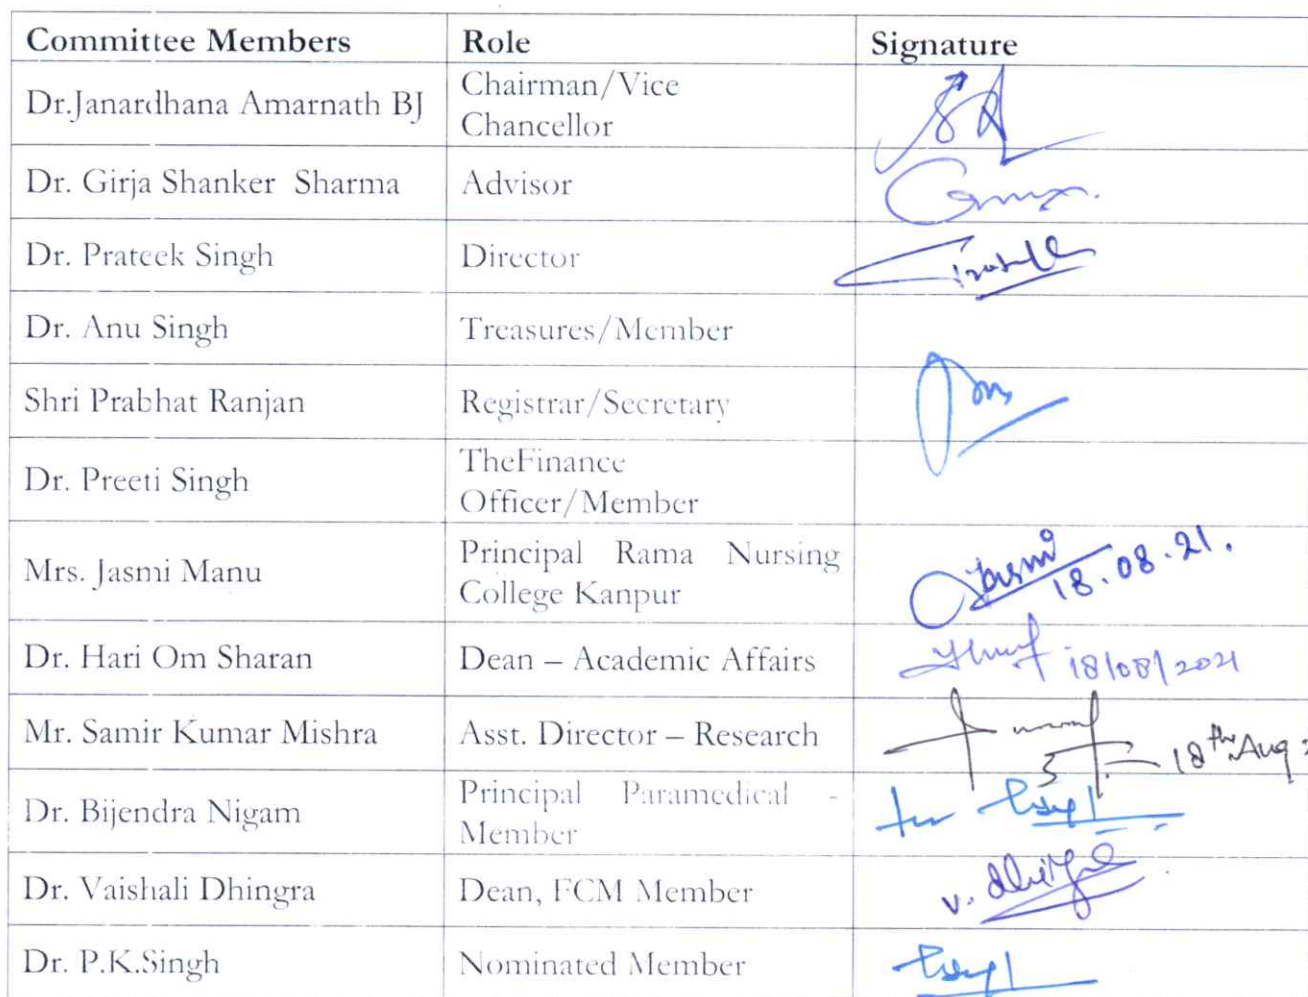 Committee Members Role Signature
Dr.Janardhana Amarnath BJ Chairman/Vice
Chancellor
Dr. Girja Shanker Sharma Advisor
Dr. Prateek Singh Director
Dr. Anu Singh Treasures/Member
Shri Prabhat Ranjan Registrar/Secretary
Dr. Preeti Singh TheFinance
Officer/Member
Mrs. Jasmi Manu Principal Rama Nursing
College Kanpur
Jasmi
18.08.21.
Dr. Hari Om Sharan Dean – Academic Affairs 18/08/2021
Mr. Samir Kumar Mishra Asst. Director – Research 18th Aug
Dr. Bijendra Nigam Principal Paramedical -
Member
for
Dr. Vaishali Dhingra Dean, FCM Member V. Dhingra
Dr. P.K.Singh Nominated Member